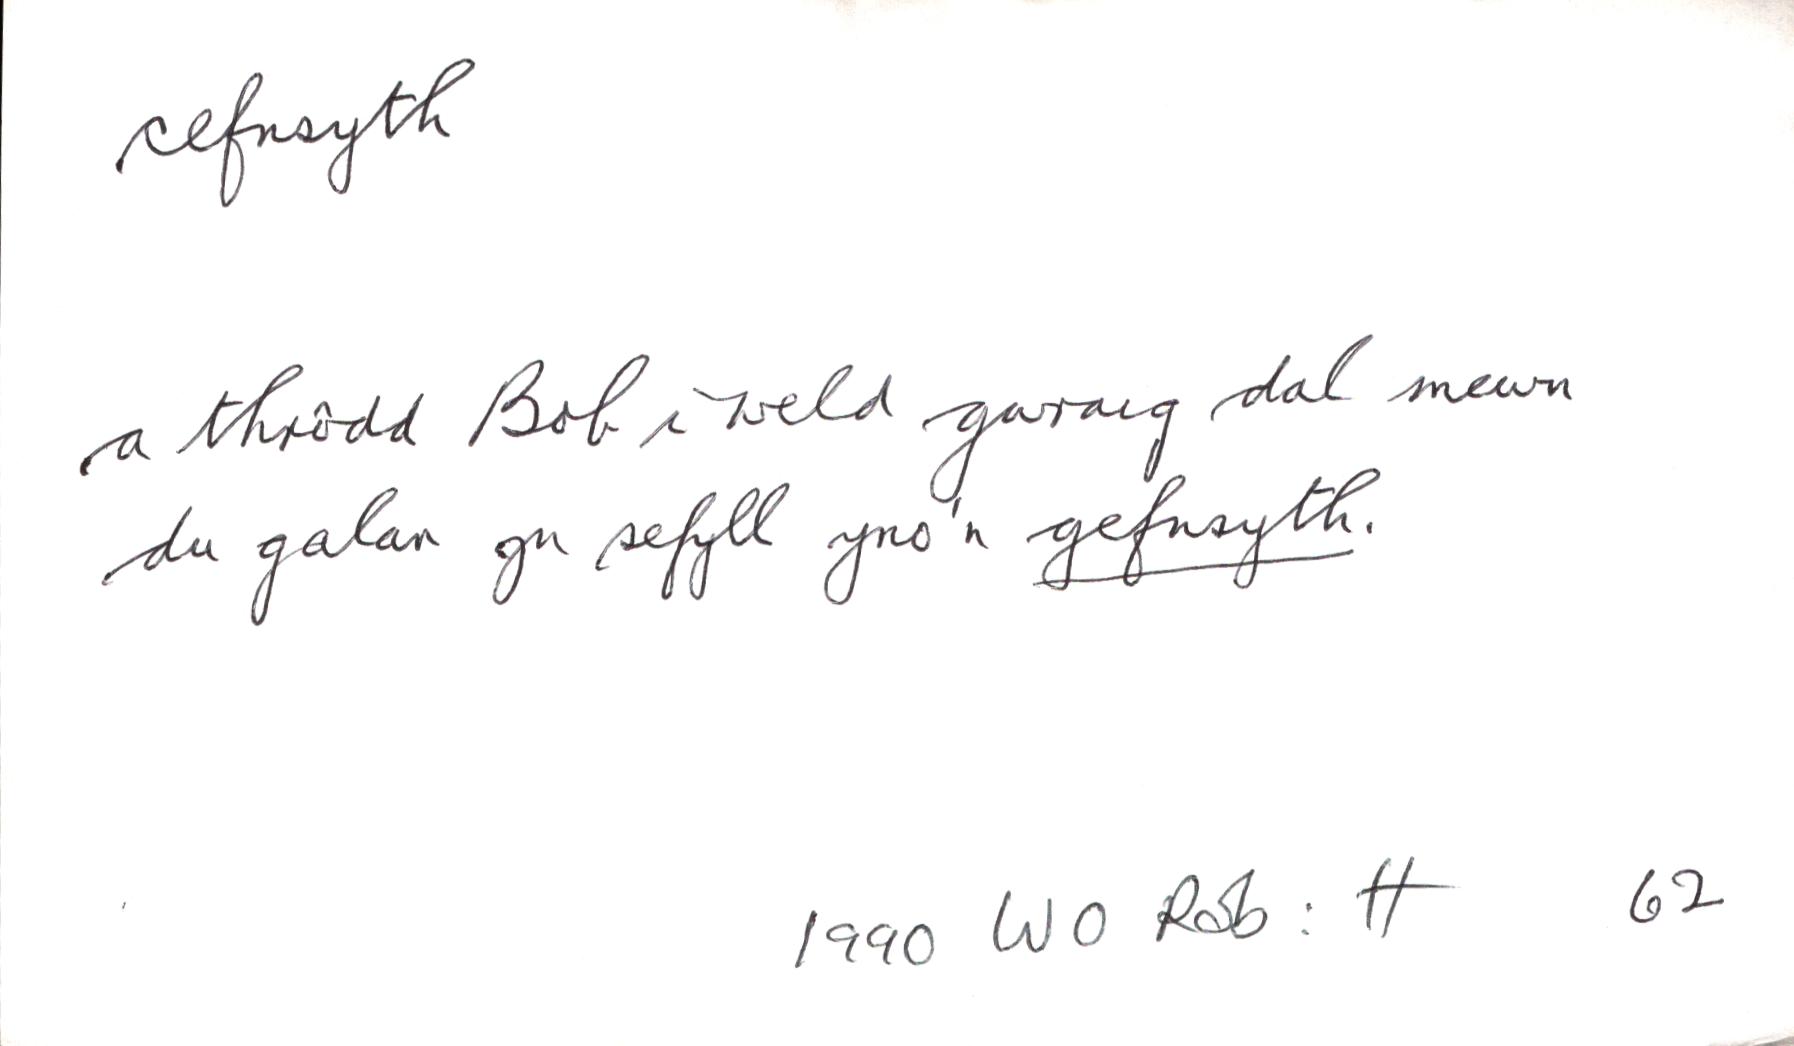 cefnsyth
a thrôdd Bob i weld gwraig dal mewn
du galar yn sefyll yno'n gefnsyth.
1990 WO Rob: H 62